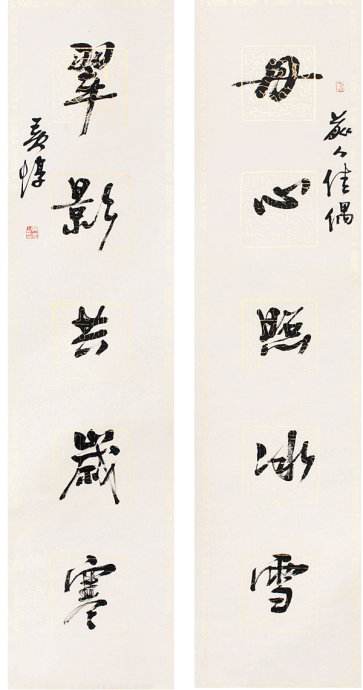 人佳偶
丹心照冰雪
翠影共歲寒
黃惇